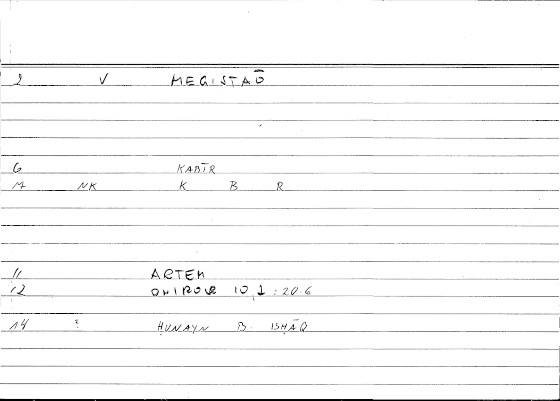 2 V MEGISTAŌ
6 KABĪR
M NK K B R
11 ARTEM
12 ONIROCR 10,1:20.6
14 ? ḤUNAYN B. ISḤĀQ